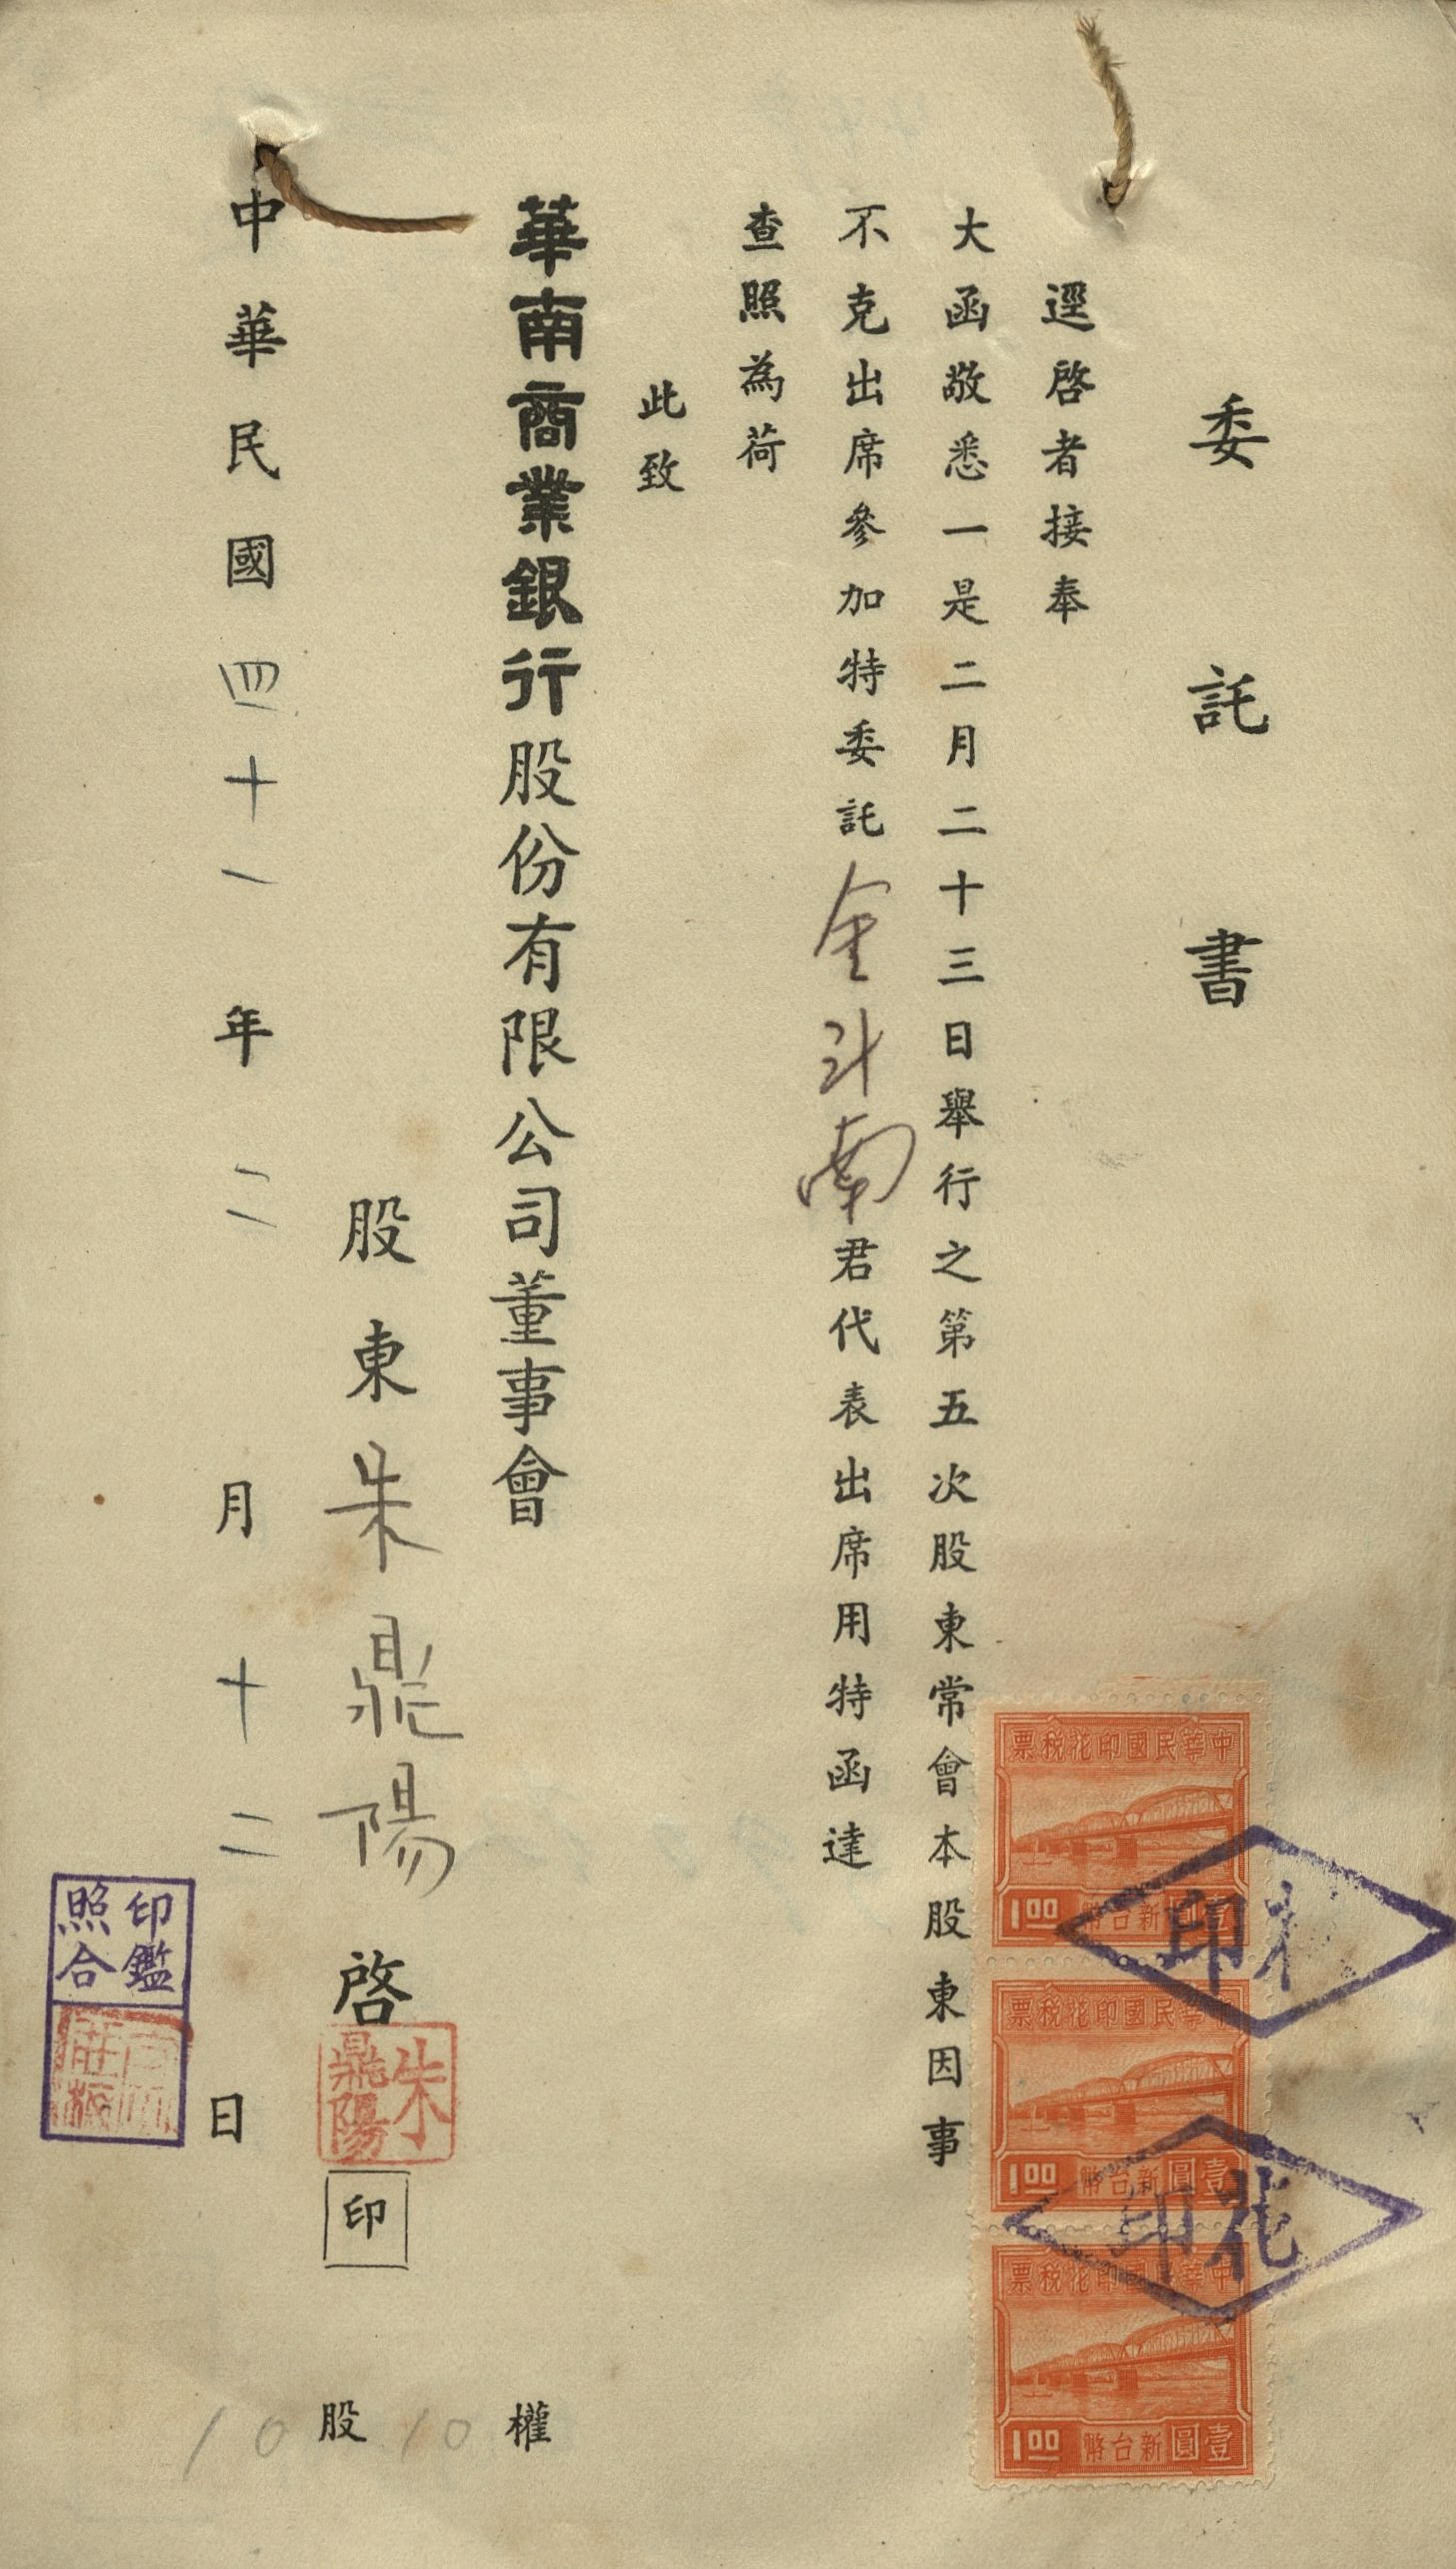 委託書
逕啓者接奉
大函敬悉一是二月二十三日舉行之第五次股東常會本股東因事
不克出席參加特委託金斗南君代表出席用特函達
查照為荷
此致
華南商業銀行股份有限公司董事會
股東朱鼎陽啓
朱鼎陽
印
中華民國四十一年二月十二日
印鑑
照合
權
10
股
10
中華民國印花稅票
1.00
新台幣壹圓
中華民國印花稅票
1.00
新台幣壹圓
中華民國印花稅票
1.00
新台幣壹圓
花印